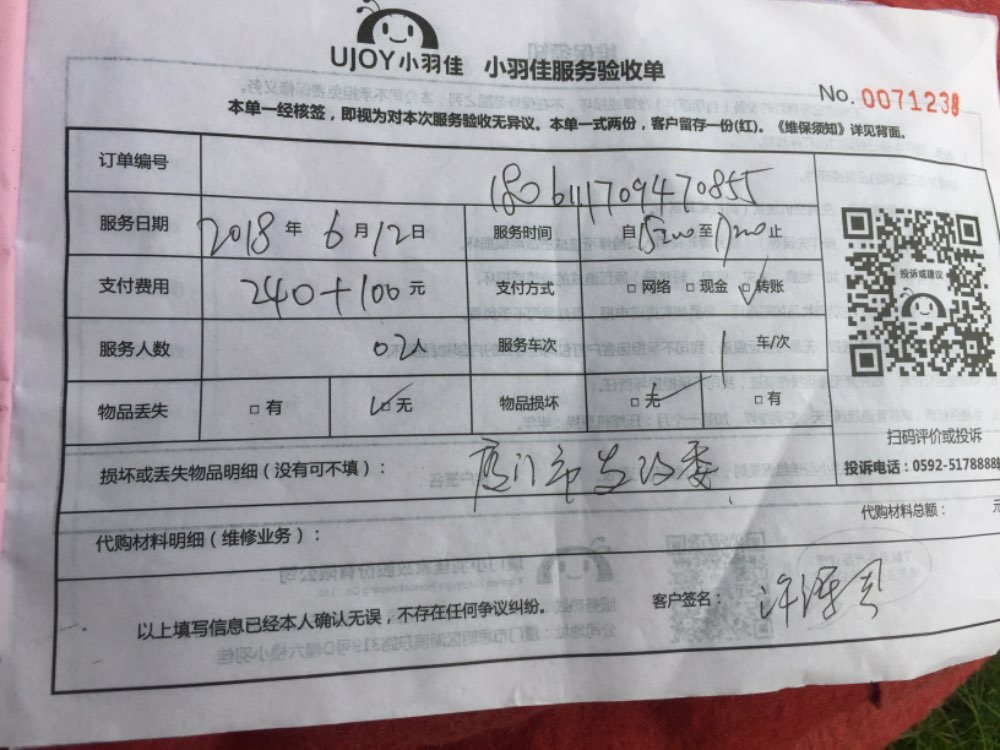 UJOY小羽佳 小羽佳服务验收单
No. 0071238
本单一经核签，即视为对本次服务验收无异议。本单一式两份，客户留存一份(红)。《维保须知》详见背面。
订单编号 180611709470855
服务日期 2018年6月12日 服务时间 自1500至1700止
支付费用 240+100元 支付方式 □网络 □现金 ☑转账
服务人数 02 服务车次 1 车/次
物品丢失 □有 ☑无 物品损坏 ☑无 □有
投诉或建议
扫码评价或投诉
投诉电话：0592-5178888
损坏或丢失物品明细（没有可不填）： 厦门市发改委
代购材料明细（维修业务）： 代购材料总额： 元
以上填写信息已经本人确认无误，不存在任何争议纠纷。 客户签名：